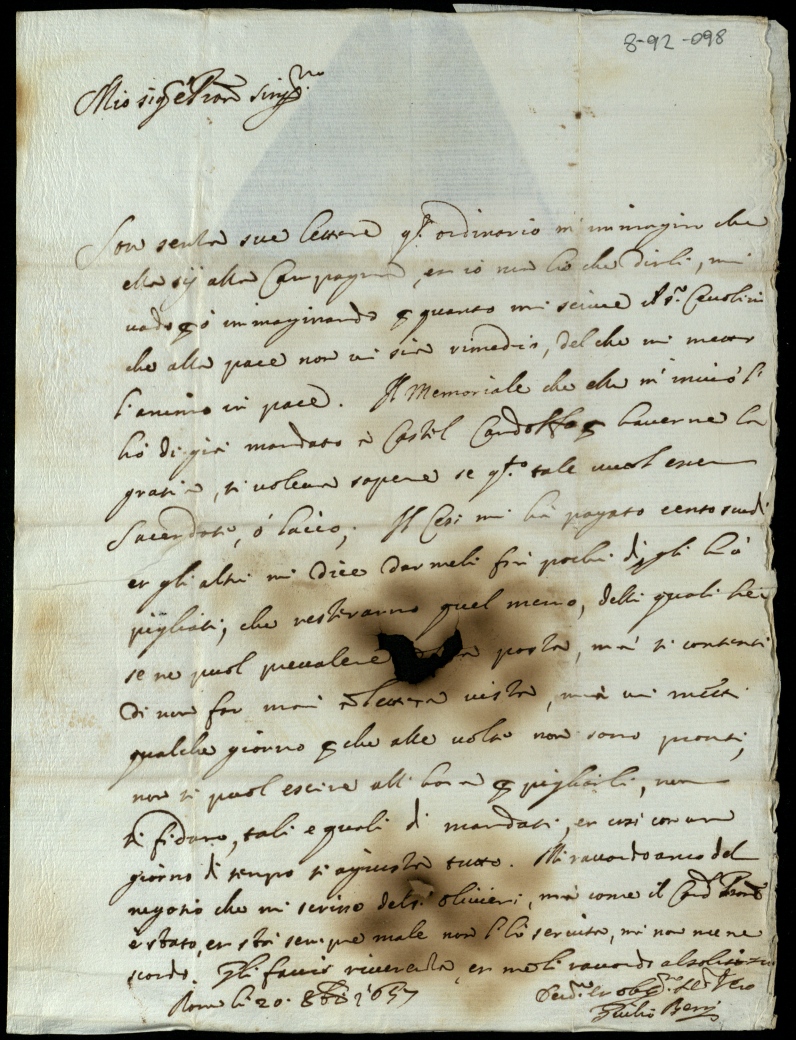 8-92-098
Mio sig.re e Pron sing.mo
Son senza sue lettere q.to ordinario m'immagino che
ella sij alla Campagna, et io non hò che dirli, mi
vado immaginando quanto mi scrive il S.r
che alla pace non vi sia rimedio, del che mi metto
l'animo in pace. Il Memoriale che ella m'inviò l'
hò di già mandato à Castel Gandolfo haverne la
gratia, si voleva sapere se q.to tale vuol essere
Sacerdote, ò laico; Il Cesi mi hà pagato cento scudi
et gli altri mi dice darmeli frà pochi dì, gli hò
pigliati, che restiranno quel meno, delli quali lei
se ne puol prevalere posta, mà si contenti
di non far mai lettera vista, mà vi metti
qualche giorno che alle volte non sono pronti,
non si puol escire all' hora pigliarli, non
si fidano, tali e quali di mandati, et così con un
giorno di tempo si agiusta tutto. Mi raccordo anco del
negotio che mi scrisse del S.r Olivieri, mà come il Card. Pron
è stato, et stà sempre male non l'hò servita, mà non me ne
scordo. Gli faccio riverenza, et me li raccordo al solito
Roma li 20. 8bre 1657
Giulio